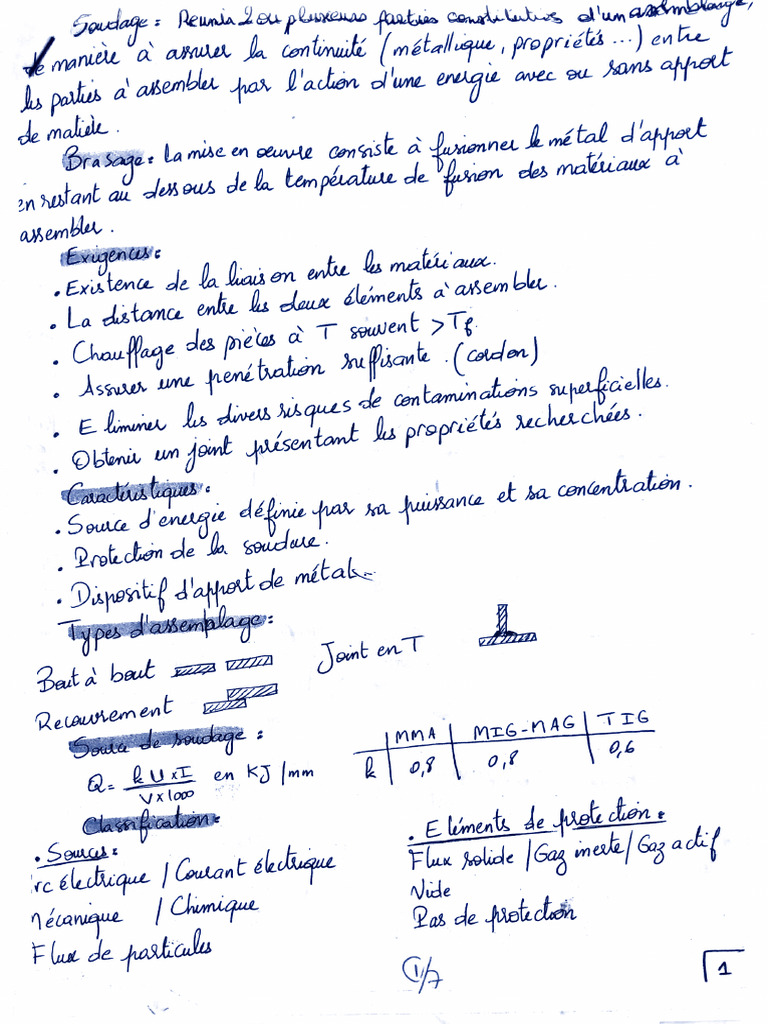 Soudage : Réunir 2 ou plusieurs parties constitutives d'un assemblage,
de manière à assurer la continuité (métallique, propriétés ...) entre
les parties à assembler par l'action d'une energie avec ou sans apport
de matière.
Brasage : La mise en œuvre consiste à fusionner le métal d'apport
en restant au dessous de la température de fusion des matériaux à
assembler.
Exigences :
• Existence de la liaison entre les matériaux.
• La distance entre les deux éléments à assembler.
• Chauffage des pièces à T souvent > Tf.
• Assurer une penétration suffisante. (cordon)
• Eliminer les divers risques de contaminations superficielles.
• Obtenir un joint présentant les propriétés recherchées.
Caractéristiques :
• Source d'energie définie par sa puissance et sa concentration.
• Protection de la soudure.
• Dispositif d'apport de métal.
Types d'assemblage :
Bout à bout Joint en T
Recouvrement
Source de soudage :
MMA MIG-MAG TIG
k 0,8 0,8 0,6
Q = k U x I / V x 1000 en KJ/mm
Classification :
• Sources :
rc électrique / Courant électrique
mécanique / Chimique
Flux de particules
• Eléments de protection :
Flux solide / Gaz inerte / Gaz actif
Vide
Pas de protection
1/7
1